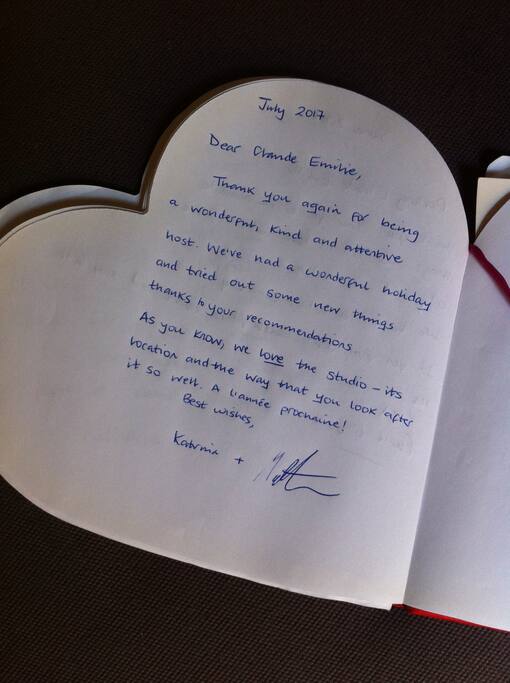 July 2017
Dear Claude Emilie,
Thank you again for being
a wonderful, kind and attentive
host. We've had a wonderful holiday
and tried out some new things
thanks to your recommendations
As you know, we love the studio – its
location and the way that you look after
it so well. A L'année prochaine!
Best wishes,
Katrina +